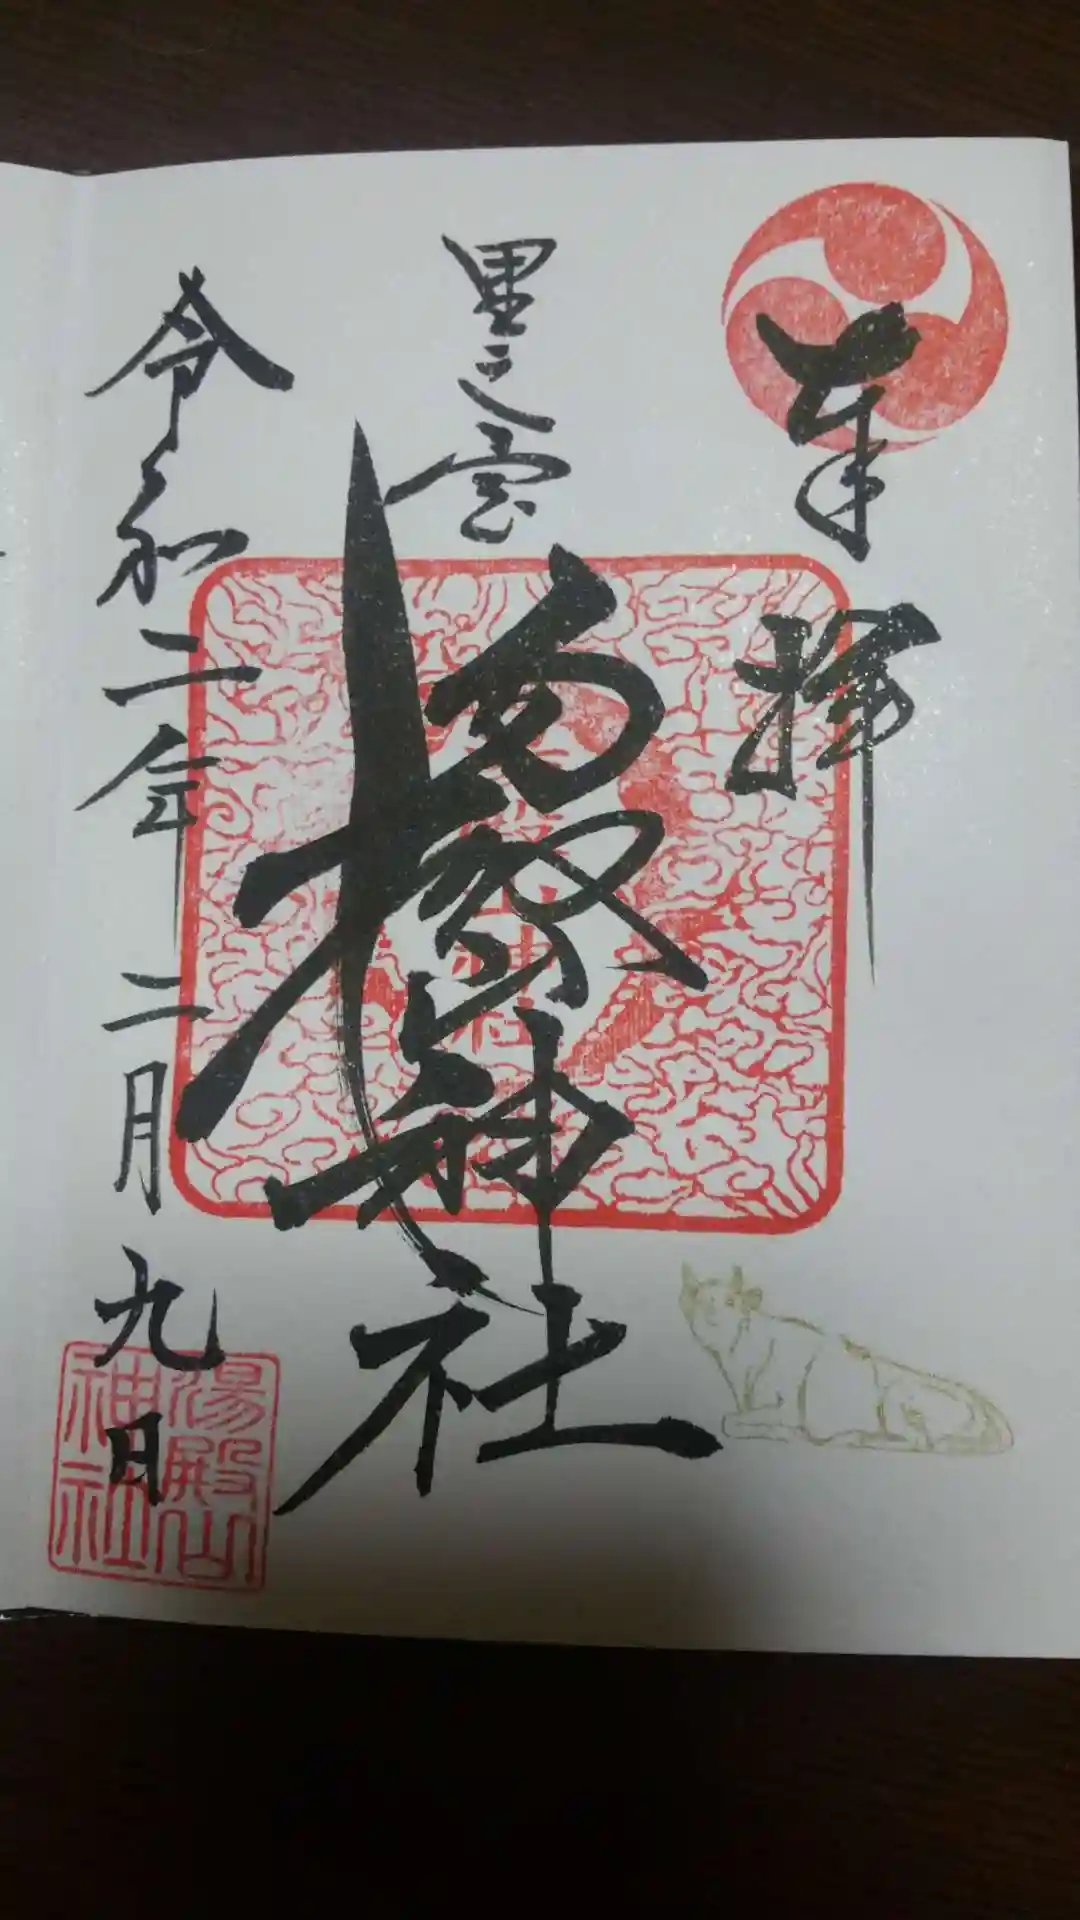 奉拝
里之宮
湯殿山神社
令和二年二月九日
湯殿山
神社